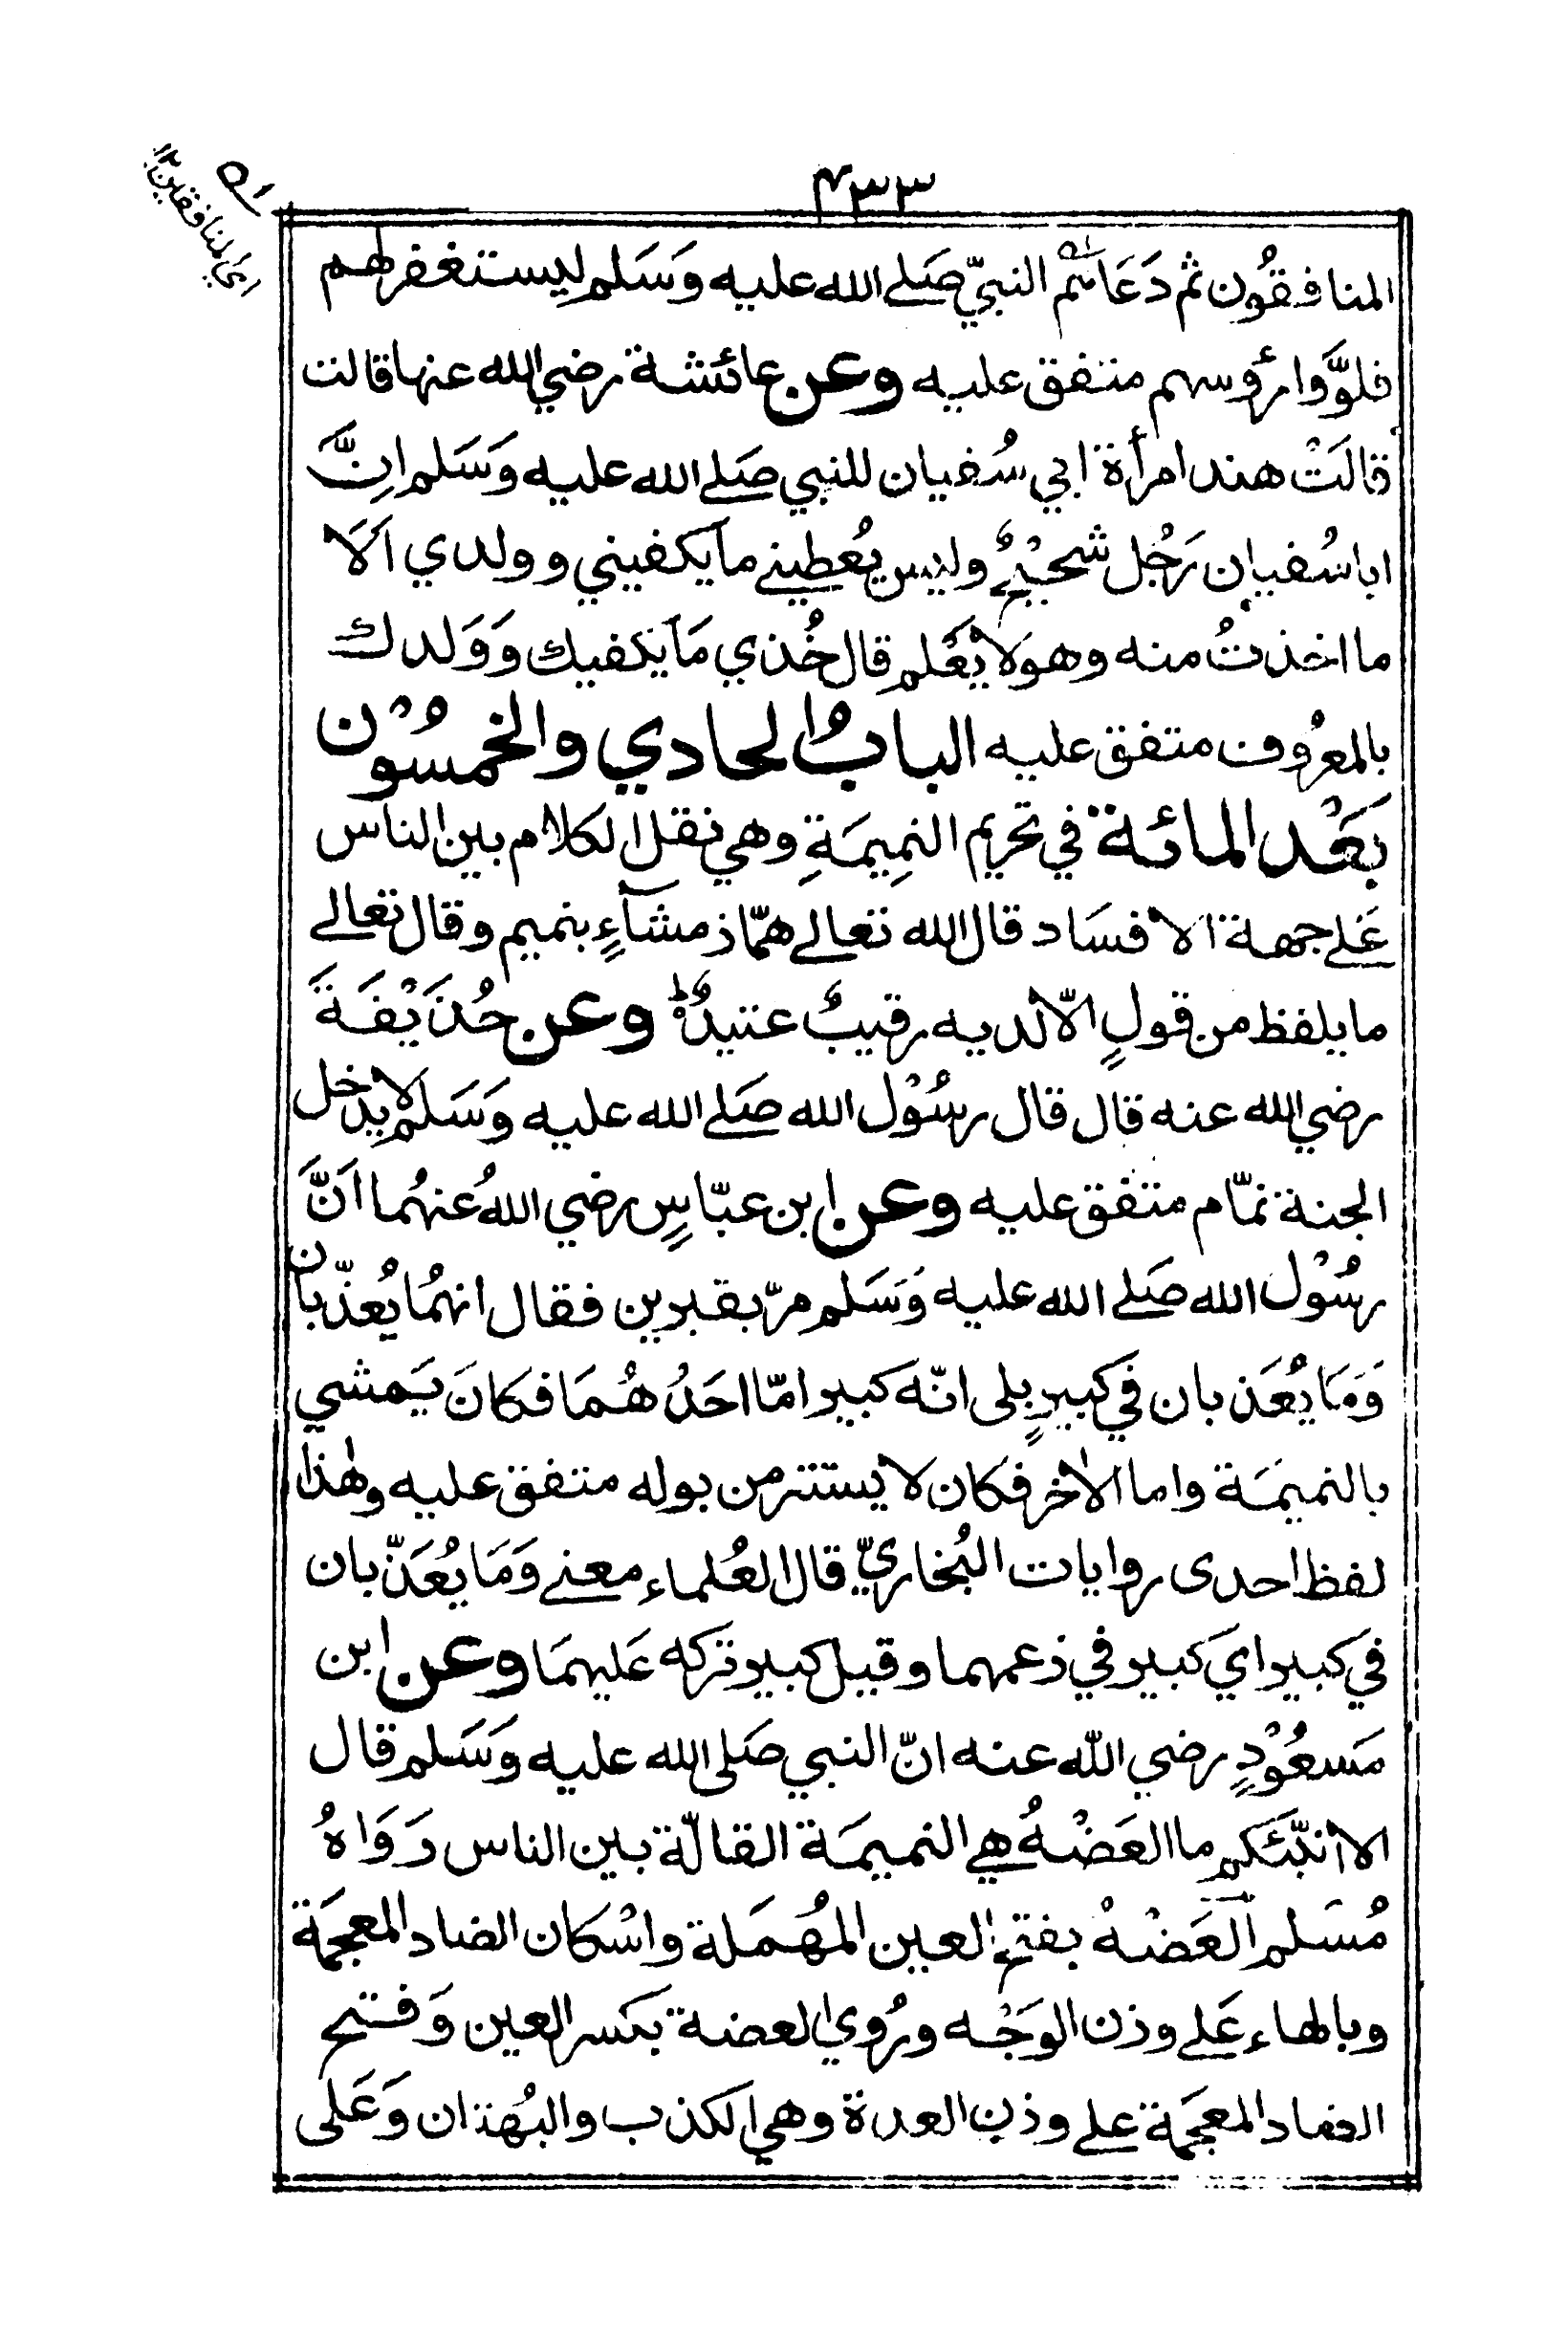 ۴۳۳
ای المنافقین ۱۲
المنافقُون ثم دَعَاهُم النبيّ صَلے الله عليه وَسَلم لِيستغفرلهم
فلوَّوا رؤسهم متفق عليه وعن عائشة رضي الله عنها قالت
قالَتْ هند امرأة ابي سُفيان للنبي صَلے الله عليه وَسَلم اِنَّ
اباسُفيان رَجُل شحيْحٌ وليس يُعطينے مايَكفيني وولدي اَلَا
ما اخذتُ منه وهولَا يَعْلم قال خُذي مَايَكفيك وَوَلدك
بالمعرُوف متفق عليه البابُ الحادي والخمسُوْن
بَعْد المائة في تحريم النمِيمَةِ وهي نقل الكلام بين الناس
عَلے جهة الافسَاد قال الله تعالے همّاز مشآءٍ بنميم وقال تعالے
مايلفظ من قولٍ الّا لديه رقيبٌ عتيدٌ وعن حُذَيْفَةَ
رضي الله عنه قال قال رسُوْل الله صَلے الله عليه وَسَلم لا يدخل
الجنة نمّام متفق عليه وعن ابن عبّاسٍ رضي اللهُ عنهُما اَنَّ
رسُوْل الله صَلے الله عليه وَسَلم مرّ بقبرين فقال انهمُا يُعذّبان
وَمَا يُعَذبان في كبيرٍ بلى انّه كبير امّا احَدُ هُمَا فكانَ يَمشي
بالنميمَة واما الاٰخر فكان لا يستتر من بوله متفق عليه وهٰذا
لفظ احدى روايات البُخاريّ قال العُلماء معنے وَمَا يُعَذّبان
في كبير اي كبير في زعمهما وقيل كبير تركه عَليهمَا وعن ابن
مَسعُوْدٍ رضي الله عنه انّ النبي صَلى الله عليه وَسَلم قال
الا انبّئكم ما العَضْهُ هي النميمَة القالّة بين الناس رَوَاهُ
مُسَلم اَلعَضْهْ بفتح العين المُهمَلة واسْكان الضاد المعجمَة
وبالهاء عَلے وزن الوَجْه ورُوي العضة بكسر العين وَفتح
الضاد المعجمَة علے وزن العدة وهي الكذب والبُهتان وَعَلى